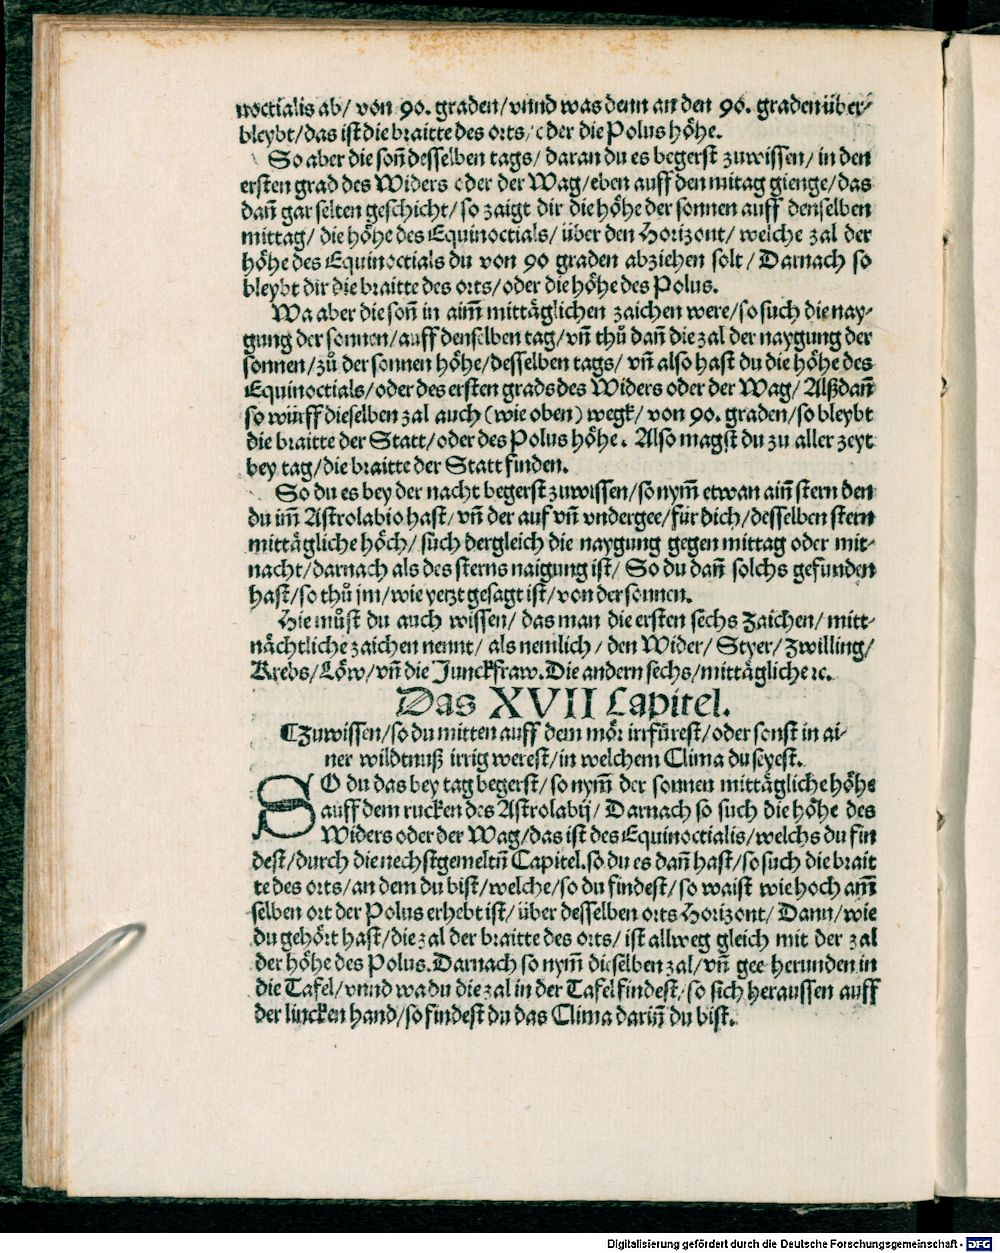 noctialis ab/ von 90. graden/ vnnd was denn an den 90. graden über⸗
bleybt/ das ist die braitte des orts/ oder die Polus höhe.
So aber die soñ desselben tags/ daran du es begerst zuwissen/ in den
ersten grad des Widers oder der Wag/ eben auff den mitag gienge/ das
dañ gar selten geschicht/ so zaigt dir die höhe der sonnen auff denselben
mittag/ die höhe des Equinoctials/ über den Horizont/ welche zal der
höhe des Equinoctials du von 90 graden abziehen solt/ Darnach so
bleybt dir die braitte des orts/ oder die höhe des Polus.
Wa aber die soñ in aim̃ mittäglichen zaichen were/ so such die nay⸗
gung der sonnen/ auff denselben tag/ vñ thů dañ die zal der naygung der
sonnen/ zů der sonnen höhe/ desselben tags/ vñ also hast du die höhe des
Equinoctials/ oder des ersten grads des Widers oder der Wag/ Alßdañ
so würff dieselben zal auch (wie oben) wegk/ von 90. graden/ so bleybt
die braitte der Statt/ oder des Polus höhe. Also magst du zu aller zeyt
bey tag/ die braitte der Statt finden.
So du es bey der nacht begerst zuwissen/ so nym̃ etwan aiñ stern den
du im̃ Astrolabio hast/ vñ der auf vñ vndergee/ für dich/ desselben stern
mittägliche höch/ sůch dergleich die naygung gegen mittag oder mit⸗
nacht/ darnach als des sterns naigung ist/ So du dañ solchs gefunden
hast/ so thů jm/ wie yetzt gesagt ist/ von der sonnen.
Hie můst du auch wissen/ das man die ersten sechs Zaichen/ mitt⸗
nächtliche zaichen nennt/ als nemlich/ den Wider/ Styer/ Zwilling/
Krebs/ Löw/ vñ die Junckfraw. Die andern sechs/ mittägliche ꝛc.
Das XVII Capitel.
❡Zuwissen/ so du mitten auff dem mör irrfürest/ oder sonst in ai⸗
ner wildtnuß irrig werest/ in welchem Clima du seyest.
SO du das bey tag begerst/ so nym̃ der sonnen mittägliche höhe
auff dem rucken des Astrolabij/ Darnach so such die höhe des
Widers oder der Wag/ das ist des Equinoctialis/ welchs du fin
dest/ durch die nechstgemeltñ Capitel. so du es dañ hast/ so such die brait
te des orts/ an dem du bist/ welche/ so du findest/ so waist wie hoch am̃
selben ort der Polus erhebt ist/ über desselben orts Horizont/ Dann/ wie
du gehört hast/ die zal der braitte des orts/ ist allweg gleich mit der zal
der höhe des Polus. Darnach so nym̃ dieselben zal/ vñ gee herunden in
die Tafel/ vnnd wa du die zal in der Tafel findest/ so sich heraussen auff
der lincken hand/ so findest du das Clima dariñ du bist.
Digitalisierung gefördert durch die Deutsche Forschungsgemeinschaft - DFG